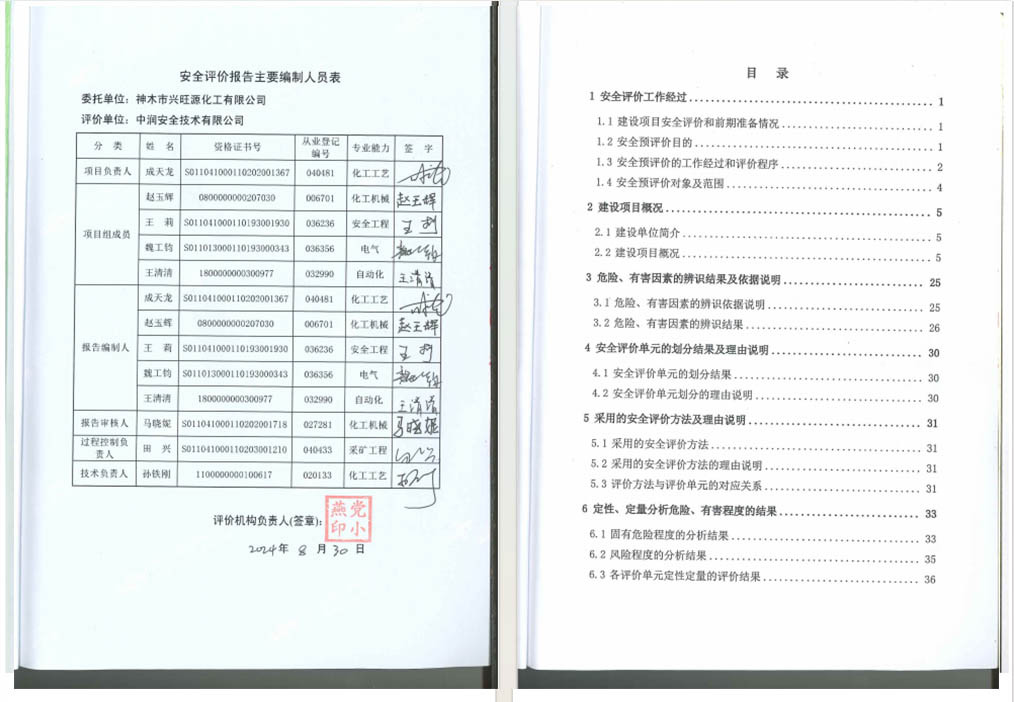 安全评价报告主要编制人员表
委托单位：神木市兴旺源化工有限公司
评价单位：中润安全技术有限公司
分 类 姓 名 资格证书号 从业登记编号 专业能力 签 字
项目负责人 成天龙 S011041000110202001367 040481 化工工艺
项目组成员 赵玉辉 0800000000207030 006701 化工机械 赵玉辉
王 莉 S011041000110193001930 036236 安全工程 王莉
魏工钧 S011013000110193000343 036356 电气
王清清 1800000000300977 032990 自动化 王清清
报告编制人 成天龙 S011041000110202001367 040481 化工工艺
赵玉辉 0800000000207030 006701 化工机械 赵玉辉
王 莉 S011041000110193001930 036236 安全工程 王莉
魏工钧 S011013000110193000343 036356 电气
王清清 1800000000300977 032990 自动化 王清清
报告审核人 马晓妮 S011041000110202001718 027281 化工机械 马晓妮
过程控制负责人 田 兴 S011041000110203001210 040433 采矿工程
技术负责人 孙铁刚 1100000000100617 020133 化工工艺
评价机构负责人(签章)：
燕党
印小
2024年 8 月 30 日
目 录
1 安全评价工作经过 1
1.1 建设项目安全评价和前期准备情况 1
1.2 安全预评价目的 1
1.3 安全预评价的工作经过和评价程序 2
1.4 安全预评价对象及范围 4
2 建设项目概况 5
2.1 建设单位简介 5
2.2 建设项目概况 5
3 危险、有害因素的辨识结果及依据说明 25
3.1 危险、有害因素的辨识依据说明 25
3.2 危险、有害因素的辨识结果 26
4 安全评价单元的划分结果及理由说明 30
4.1 安全评价单元的划分结果 30
4.2 安全评价单元划分的理由说明 30
5 采用的安全评价方法及理由说明 31
5.1 采用的安全评价方法 31
5.2 采用的安全评价方法的理由说明 31
5.3 评价方法与评价单元的对应关系 31
6 定性、定量分析危险、有害程度的结果 33
6.1 固有危险程度的分析结果 33
6.2 风险程度的分析结果 35
6.3 各评价单元定性定量的评价结果 36